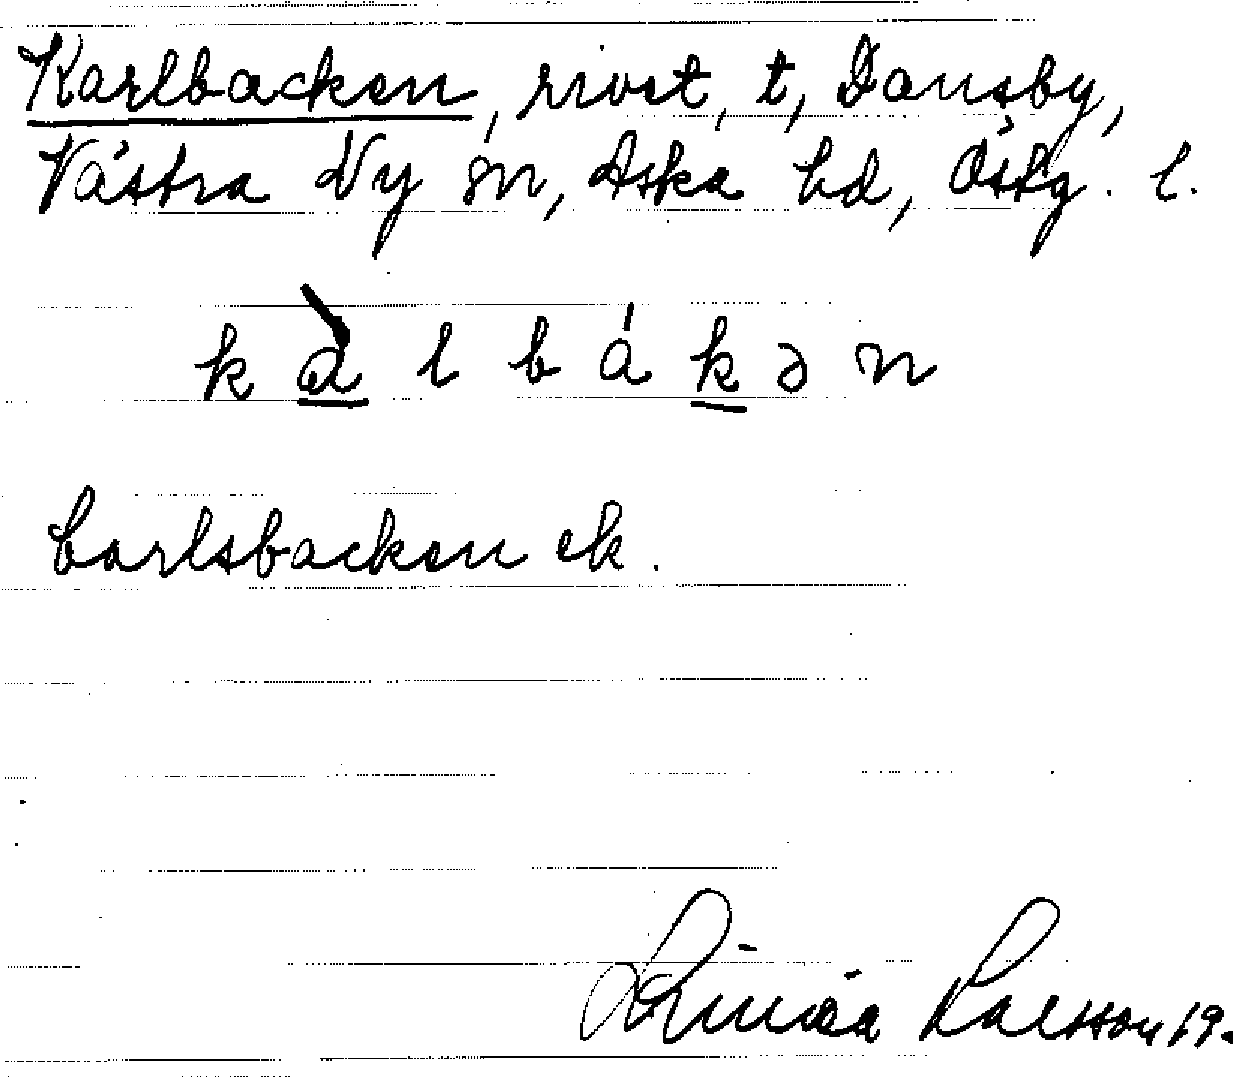 Karlbacken, rivet, t, Dansby,
Västra Ny sn, Aska hd, Östg. l.
kàlbákən
Carlsbacken ek.
Linnéa Larsson 19.